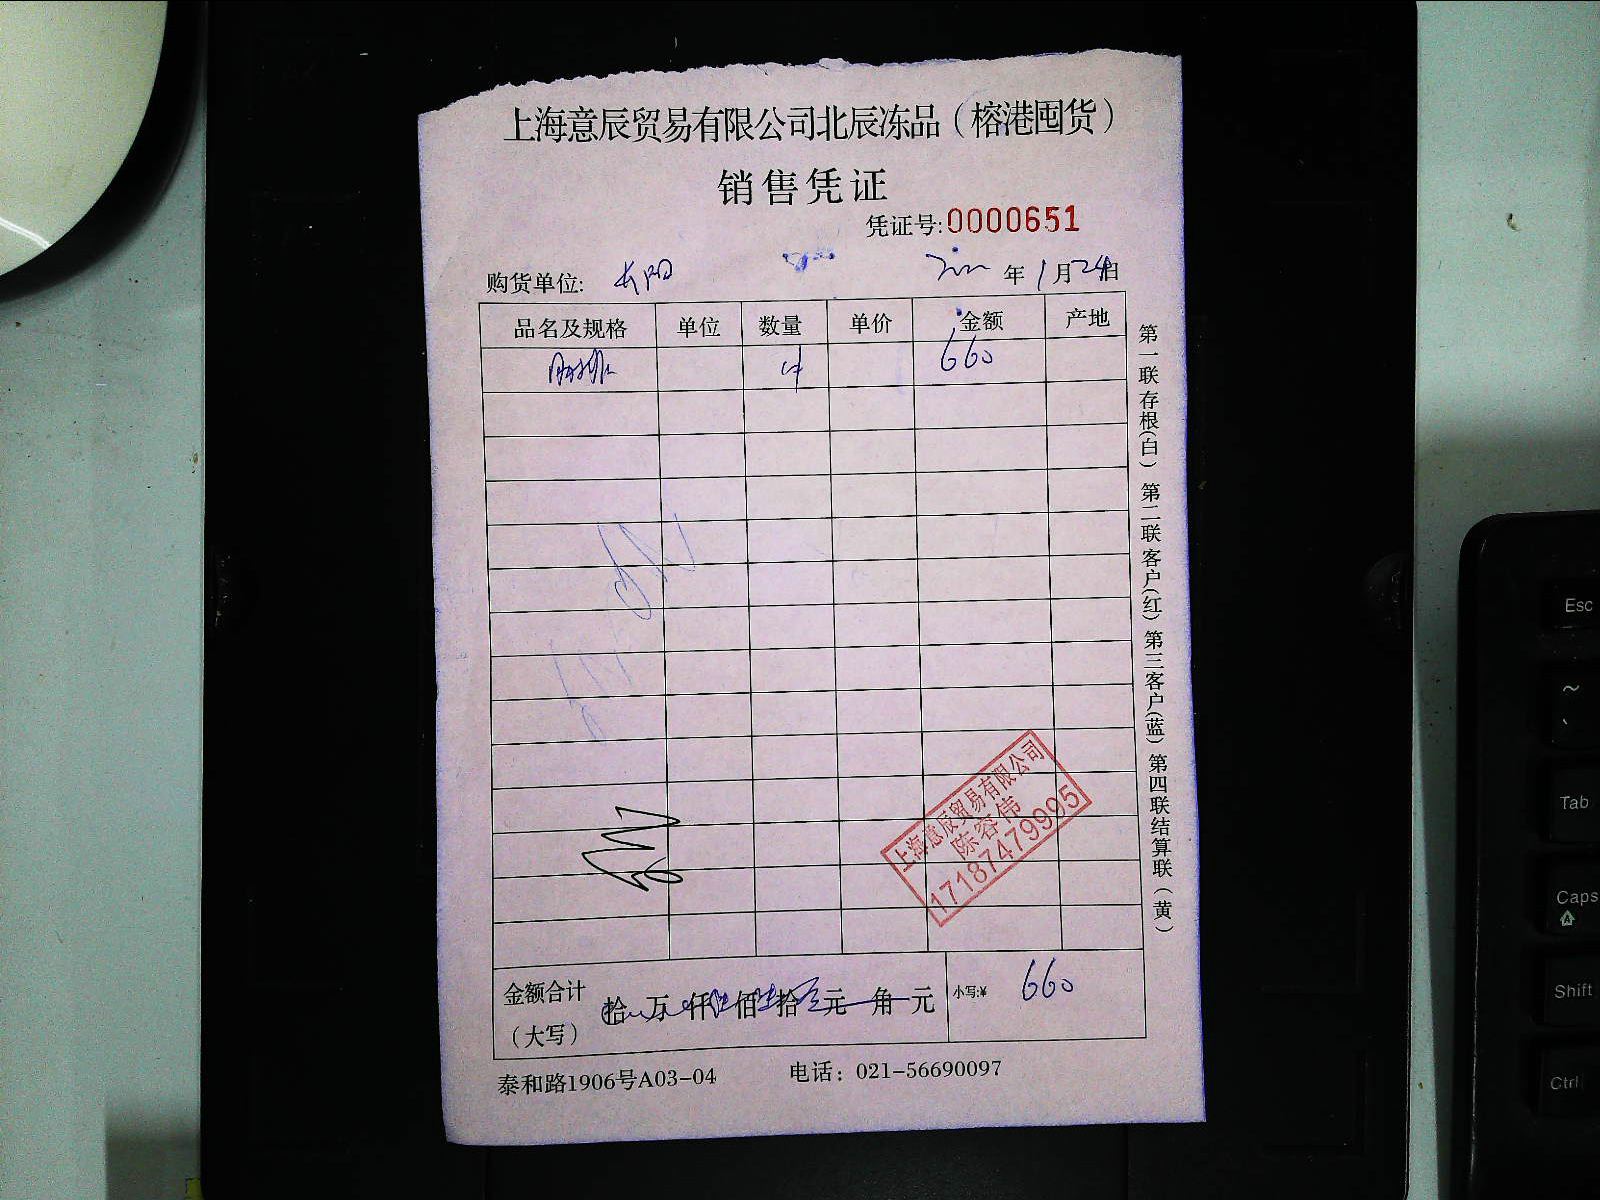 上海意辰贸易有限公司北辰冻品（榕港囤货）
销售凭证
凭证号:0000651
购货单位: 长阳 年1月24日
品名及规格 单位 数量 单价 金额 产地
4 660
第一联存根(白) 第二联客户(红) 第三客户(蓝) 第四联结算联(黄)
上海意辰贸易有限公司
陈容伟
17187479995
金额合计（大写） 拾 万 仟 佰 拾 元 角 元 小写:¥ 660
泰和路1906号A03-04 电话：021-56690097
Esc
~
、
Tab
Caps
A
Shift
Ctrl